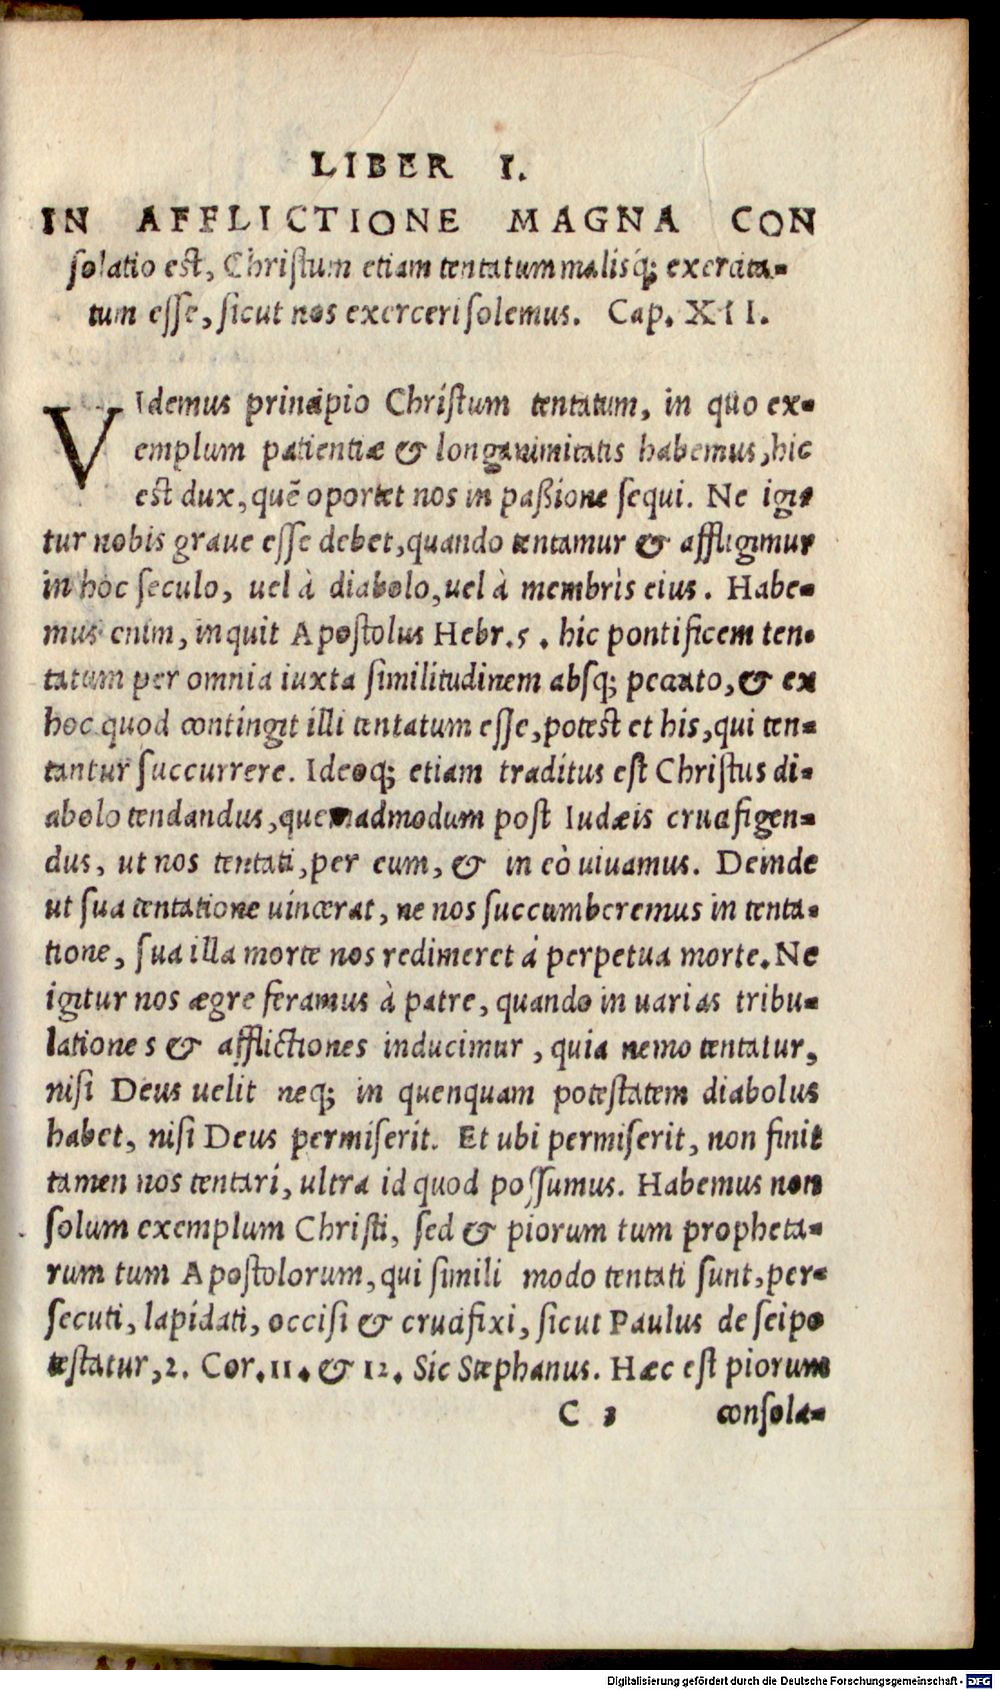 LIBER I.
IN AFFLICTIONE MAGNA CON
ſolatio eſt, Chriſtum etiam tentatum malisq́; exercita-
tum eſſe, ſicut nos exerceri ſolemus. Cap. XII.
VIdemus principio Chriſtum tentatum, in quo ex-
emplum patientiæ & longanimitatis habemus, hic
eſt dux, quẽ oportet nos in paßione ſequi. Ne igi-
tur nobis graue eſſe debet, quando tentamur & affligimur
in hoc ſeculo, uel à diabolo, uel à membris eius. Habe-
mus enim, inquit Apoſtolus Hebr. 5. hic pontificem ten-
tatum per omnia iuxta ſimilitudinem absq; peccato, & ex
hoc quod contingit illi tentatum eſſe, poteſt et his, qui ten-
tantur ſuccurrere. Ideoq; etiam traditus eſt Chriſtus di-
abolo tendandus, quemadmodum poſt Iudæis crucifigen-
dus, ut nos tentati, per eum, & in eò uiuamus. Deinde
ut ſua tentatione uincerat, ne nos ſuccumberemus in tenta-
tione, ſua illa morte nos redimeret á perpetua morte. Ne
igitur nos ægre feramus à patre, quando in uarias tribu-
latione s & afflictiones inducimur, quia nemo tentatur,
niſi Deus uelit neq; in quenquam poteſtatem diabolus
habet, niſi Deus permiſerit. Et ubi permiſerit, non ſinit
tamen nos tentari, ultra id quod poſſumus. Habemus non
ſolum exemplum Chriſti, ſed & piorum tum propheta-
rum tum Apoſtolorum, qui ſimili modo tentati ſunt, per-
ſecuti, lapidati, occiſi & crucifixi, ſicut Paulus de ſeipo
teſtatur, 2. Cor. 11. & 12. Sic Stephanus. Hæc eſt piorum
C 3 conſola-
Digitalisierung gefördert durch die Deutsche Forschungsgemeinschaft - DFG